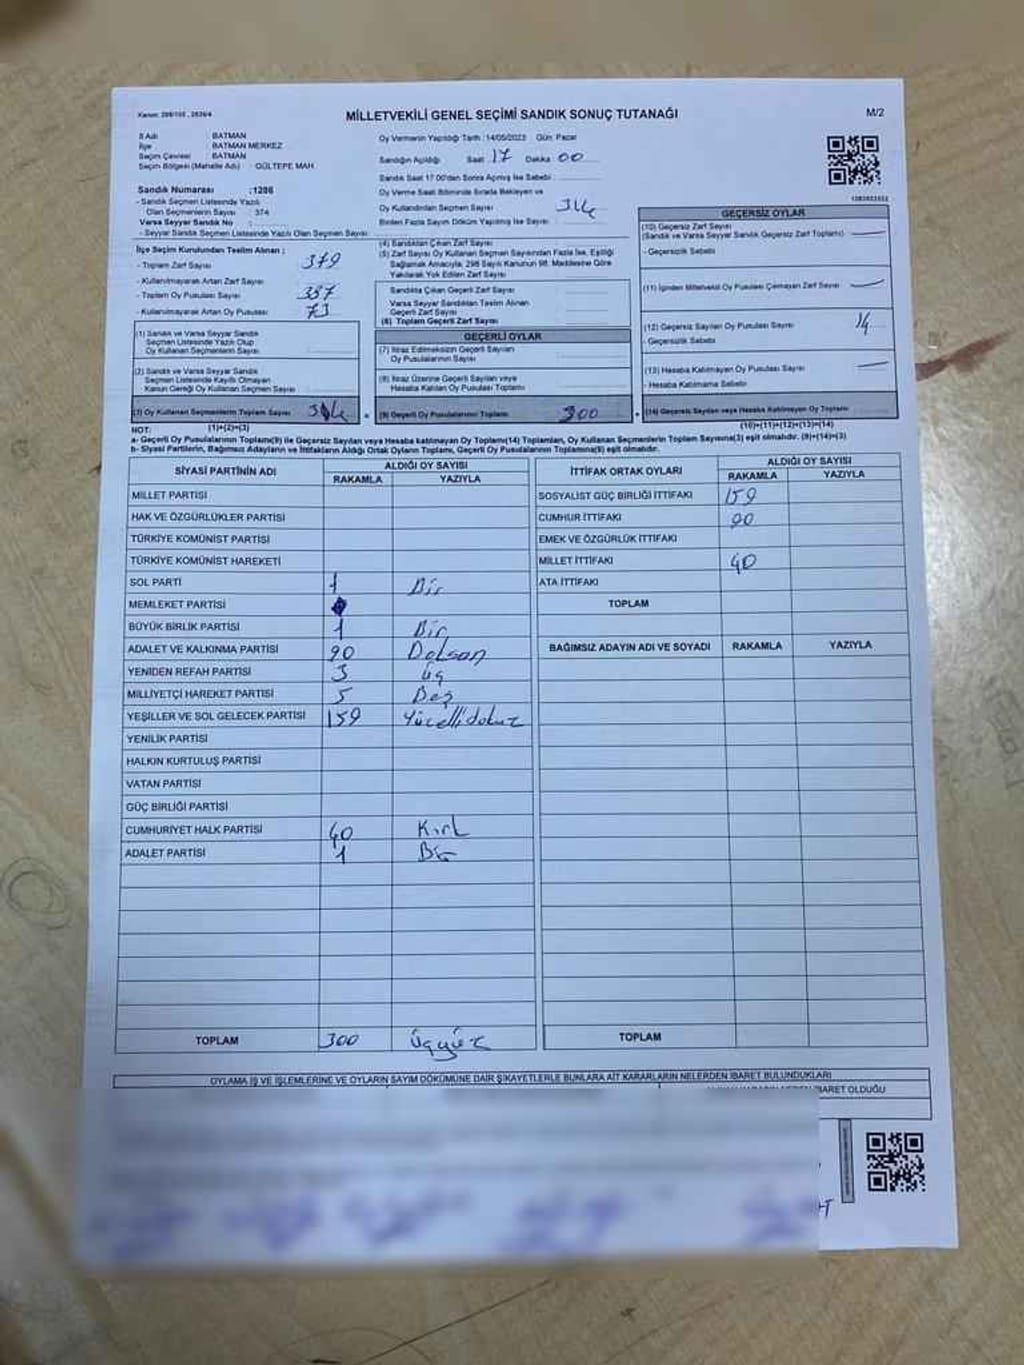 Kanun: 298/105, 2839/4
MİLLETVEKİLİ GENEL SEÇİMİ SANDIK SONUÇ TUTANAĞI
M/2
İl Adı : BATMAN
İlçe : BATMAN MERKEZ
Seçim Çevresi : BATMAN
Seçim Bölgesi (Mahalle Adı) : GÜLTEPE MAH.
Sandık Numarası :1286
- Sandık Seçmen Listesinde Yazılı
Olan Seçmenlerin Sayısı : 374
Varsa Seyyar Sandık No :
- Seyyar Sandık Seçmen Listesinde Yazılı Olan Seçmen Sayısı:
Oy Vermenin Yapıldığı Tarih :14/05/2023 Gün: Pazar
Sandığın Açıldığı Saat 17 Dakika 00
Sandık Saat 17.00'den Sonra Açılmış İse Sebebi :
Oy Verme Saati Bitiminde Sırada Bekleyen ve
Oy Kullandırılan Seçmen Sayısı : 314
Birden Fazla Sayım Döküm Yapılmış İse Sayısı :
İlçe Seçim Kurulundan Teslim Alınan ;
- Toplam Zarf Sayısı : 379
- Kullanılmayarak Artan Zarf Sayısı :
- Toplam Oy Pusulası Sayısı : 387
- Kullanılmayarak Artan Oy Pusulası : 73
(1) Sandık ve Varsa Seyyar Sandık
Seçmen Listesinde Yazılı Olup
Oy Kullanan Seçmenlerin Sayısı :
(2) Sandık ve Varsa Seyyar Sandık
Seçmen Listesinde Kayıtlı Olmayan
Kanun Gereği Oy Kullanan Seçmen Sayısı :
(3) Oy Kullanan Seçmenlerin Toplam Sayısı : 314
(1)+(2)=(3)
(4) Sandıktan Çıkan Zarf Sayısı
(5) Zarf Sayısı Oy Kullanan Seçmen Sayısından Fazla İse, Eşitliği
Sağlamak Amacıyla, 298 Sayılı Kanunun 98. Maddesine Göre
Yakılarak Yok Edilen Zarf Sayısı
Sandıkta Çıkan Geçerli Zarf Sayısı :
Varsa Seyyar Sandıktan Teslim Alınan
Geçerli Zarf Sayısı :
(6) Toplam Geçerli Zarf Sayısı :
GEÇERLİ OYLAR
(7) İtiraz Edilmeksizin Geçerli Sayılan
Oy Pusulalarının Sayısı :
(8) İtiraz Üzerine Geçerli Sayılan veya
Hesaba Katılan Oy Pusulası Toplamı :
(9) Geçerli Oy Pusulalarının Toplamı : 300
GEÇERSİZ OYLAR
(10) Geçersiz Zarf Sayısı
(Sandık ve Varsa Seyyar Sandık Geçersiz Zarf Toplamı) :
- Geçersizlik Sebebi
(11) İçinden Milletvekili Oy Pusulası Çıkmayan Zarf Sayısı :
(12) Geçersiz Sayılan Oy Pusulası Sayısı : 14
- Geçersizlik Sebebi :
(13) Hesaba Katılmayan Oy Pusulası Sayısı :
- Hesaba Katılmama Sebebi :
(14) Geçersiz Sayılan veya Hesaba Katılmayan Oy Toplamı :
(10)+(11)+(12)+(13)=(14)
NOT:
a- Geçerli Oy Pusulalarının Toplamı(9) ile Geçersiz Sayılan veya Hesaba katılmayan Oy Toplamı(14) Toplamları, Oy Kullanan Seçmenlerin Toplam Sayısına(3) eşit olmalıdır. (9)+(14)=(3)
b- Siyasi Partilerin, Bağımsız Adayların ve İttifakların Aldığı Ortak Oyların Toplamı, Geçerli Oy Pusulalarının Toplamına(9) eşit olmalıdır.
SİYASİ PARTİNİN ADI ALDIĞI OY SAYISI
RAKAMLA YAZIYLA
MİLLET PARTİSİ
HAK VE ÖZGÜRLÜKLER PARTİSİ
TÜRKİYE KOMÜNİST PARTİSİ
TÜRKİYE KOMÜNİST HAREKETİ
SOL PARTİ 1 Bir
MEMLEKET PARTİSİ
BÜYÜK BİRLİK PARTİSİ 1 Bir
ADALET VE KALKINMA PARTİSİ 90 Doksan
YENİDEN REFAH PARTİSİ 3 üç
MİLLİYETÇİ HAREKET PARTİSİ 5 Beş
YEŞİLLER VE SOL GELECEK PARTİSİ 159 Yüzellidokuz
YENİLİK PARTİSİ
HALKIN KURTULUŞ PARTİSİ
VATAN PARTİSİ
GÜÇ BİRLİĞİ PARTİSİ
CUMHURİYET HALK PARTİSİ 40 Kırk
ADALET PARTİSİ 1 Bir
TOPLAM 300 Üçyüz
İTTİFAK ORTAK OYLARI ALDIĞI OY SAYISI
RAKAMLA YAZIYLA
SOSYALİST GÜÇ BİRLİĞİ İTTİFAKI 159
CUMHUR İTTİFAKI 90
EMEK VE ÖZGÜRLÜK İTTİFAKI
MİLLET İTTİFAKI 40
ATA İTTİFAKI
TOPLAM
BAĞIMSIZ ADAYIN ADI VE SOYADI RAKAMLA YAZIYLA
TOPLAM
OYLAMA İŞ VE İŞLEMLERİNE VE OYLARIN SAYIM DÖKÜMÜNE DAİR ŞİKAYETLERLE BUNLARA AİT KARARLARIN NELERDEN İBARET BULUNDUKLARI
İBARET OLDUĞU